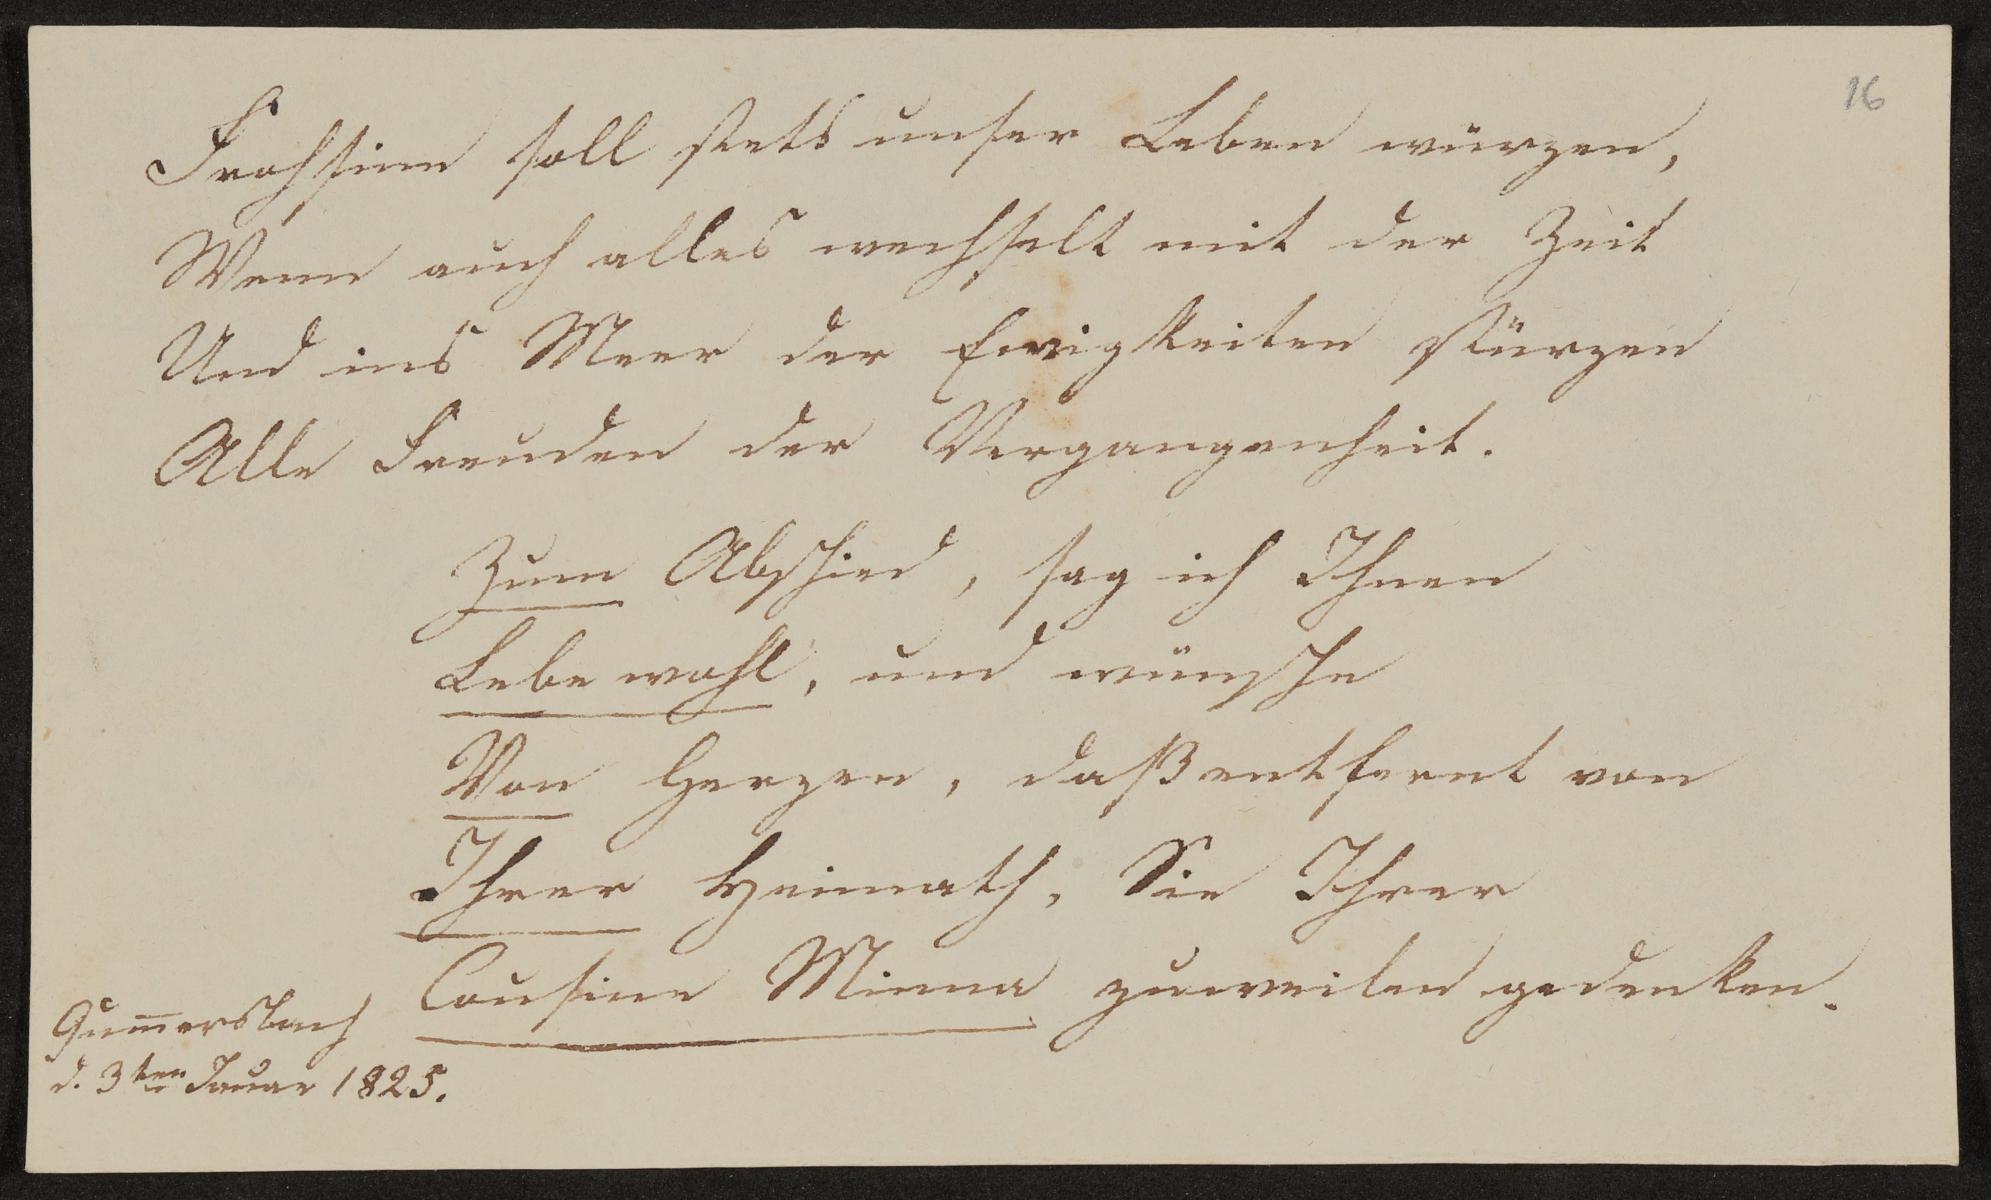 16
Frohsinn soll stets unser Leben würzen,
Wenn auch alles wechselt mit der Zeit
Und ins Meer der Ewigkeiten stürzen
Alle Freuden der Vergangenheit.
Zum Abschied, sag ich Ihnen
Lebe wohl, und wünsche
Von Herzen, daß entfernt von
Ihrer Heimath, Sie Ihrer
Cousine Minna zuweilen gedenken.
Gum̅ersbach
d. 3ten Januar 1825.